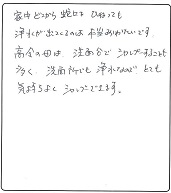 家中どこから蛇口をひねっても
浄水が出てくるのは本当ありがたいです。
高今の田は、洗面台でシャンプーすることも
多く、洗面所でも浄水なので、とても
気持ちよくシャンプーできます。